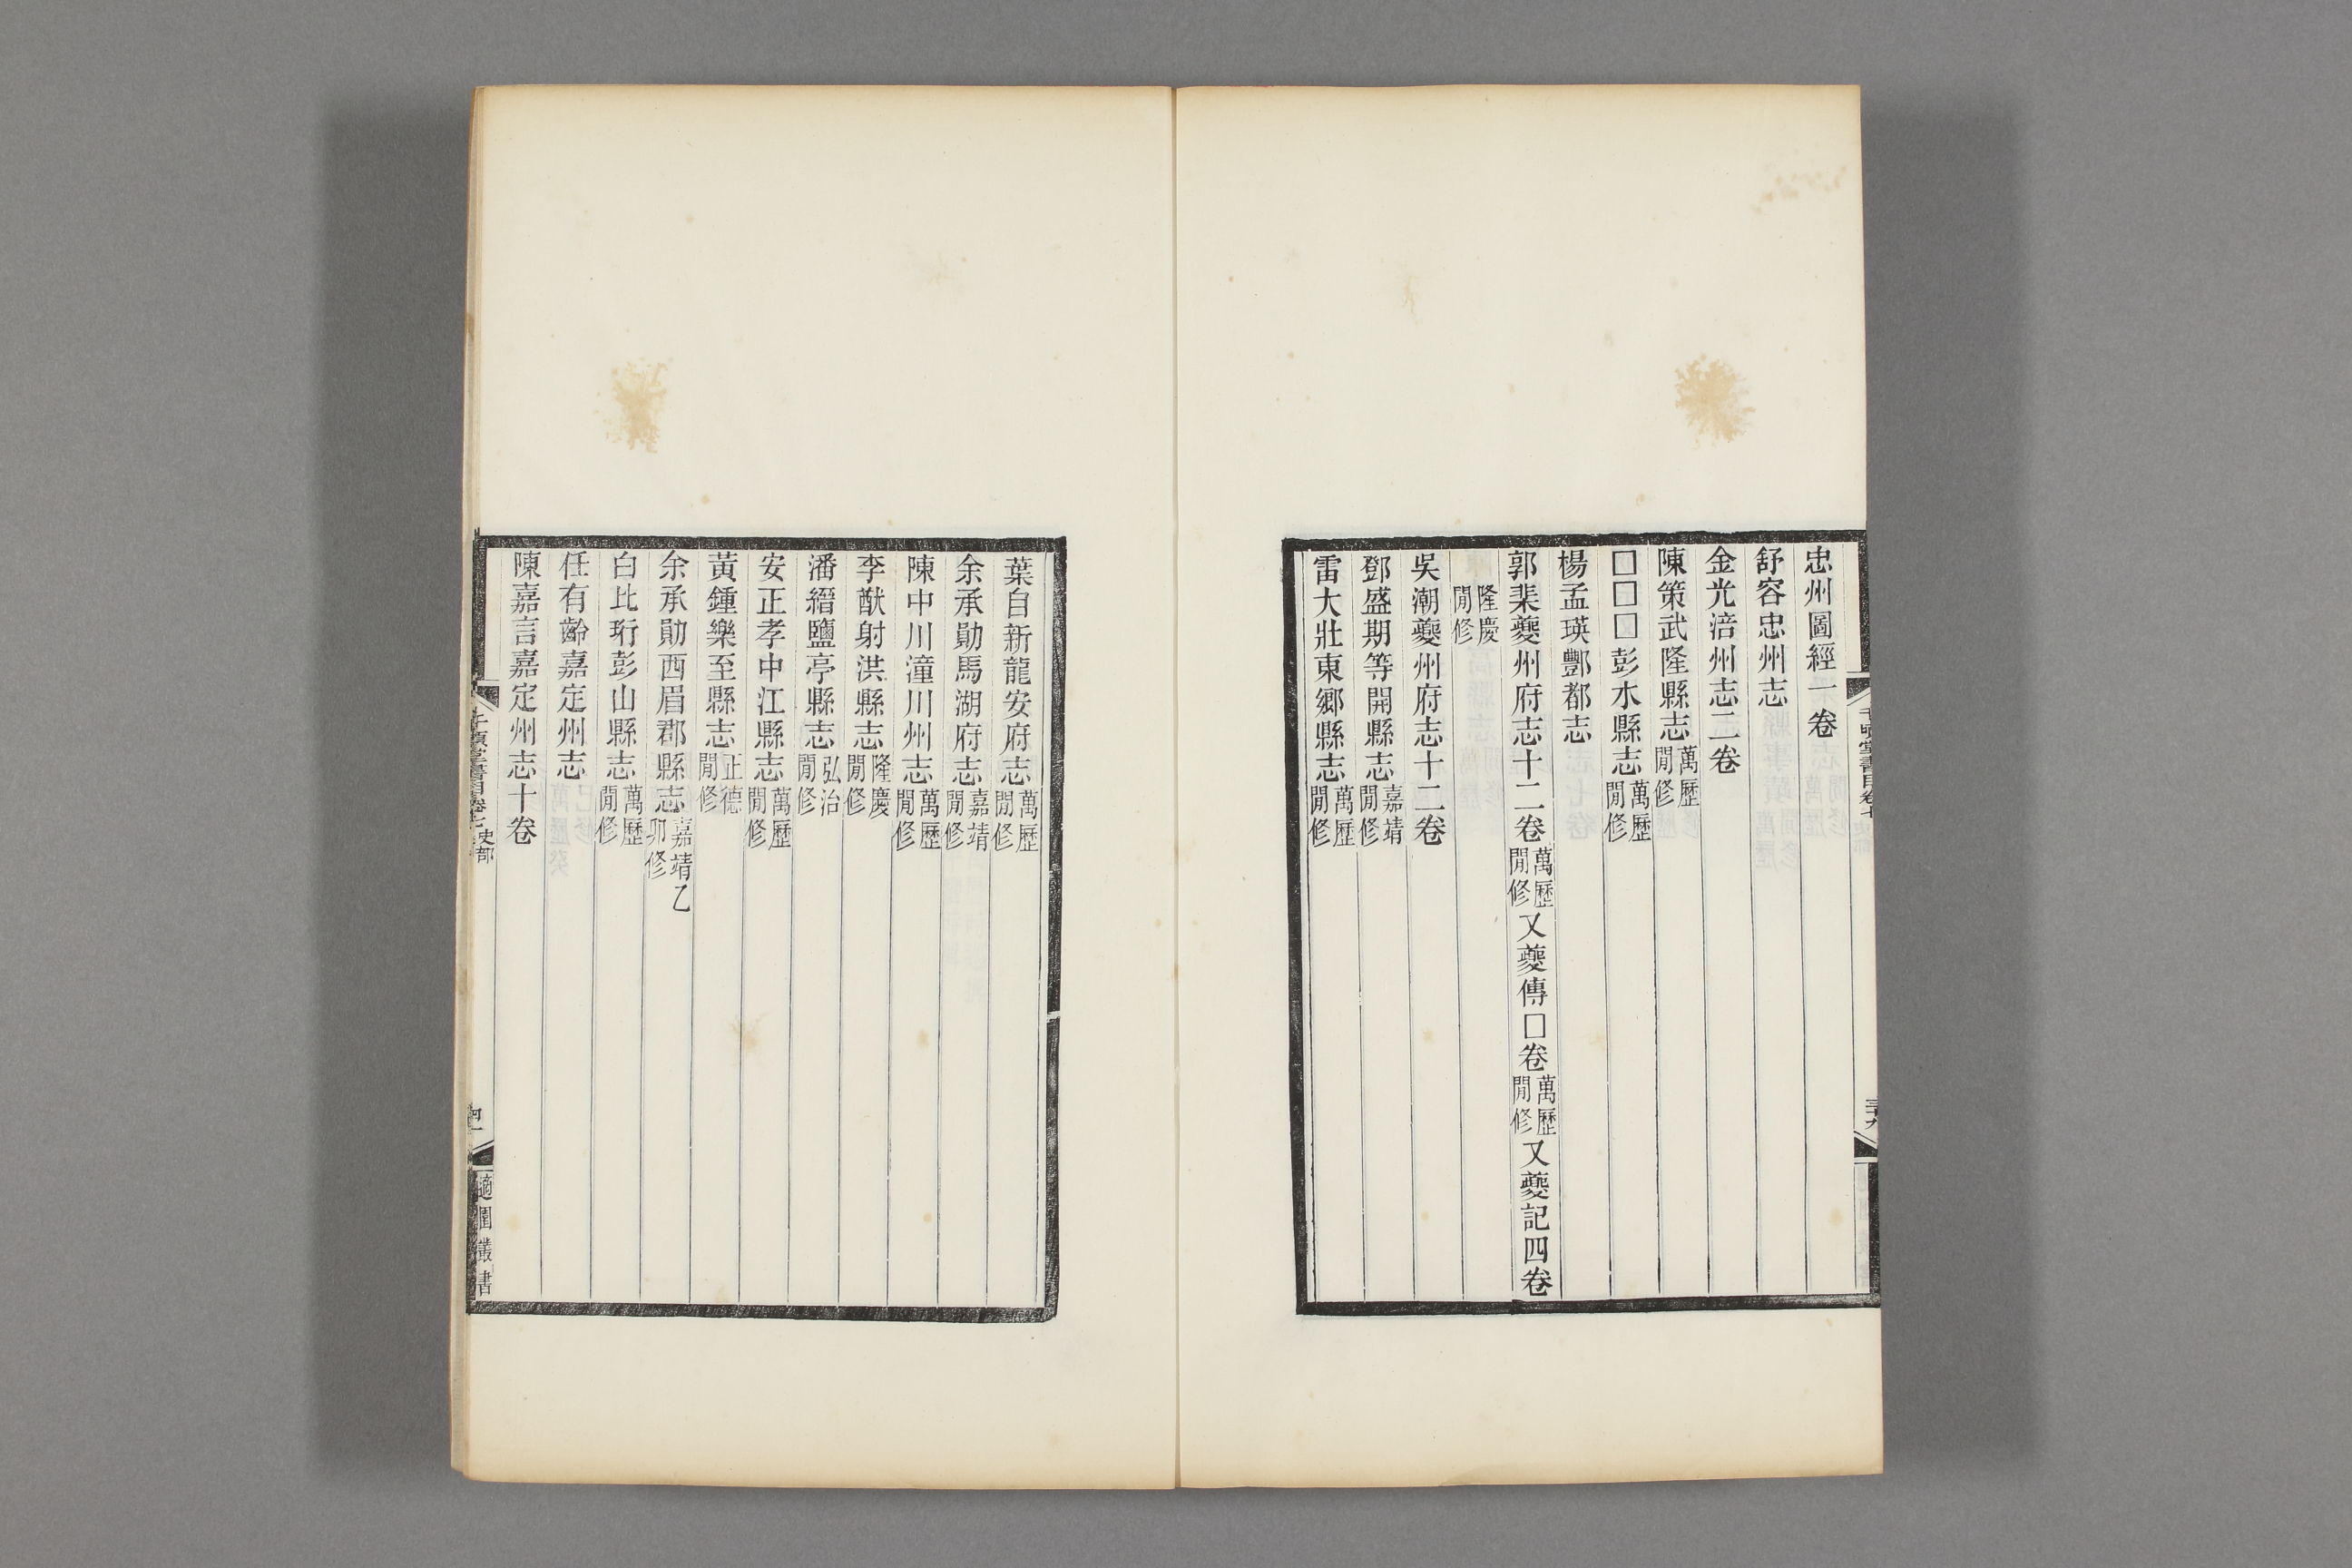 忠州圖經一卷
舒容忠州志
金光涪州志二卷
陳策武隆縣志萬歷閒修
□□□彭水縣志萬歷閒修
楊孟瑛酆都志
郭棐夔州府志十二卷萬歷閒修又夔傳□卷萬歷閒修又夔記四卷
隆慶閒修
吳潮夔州府志十二卷
鄧盛期等開縣志嘉靖閒修
雷大壯東鄉縣志萬歷閒修
千頃堂書目卷七
三十九
葉自新龍安府志萬歷閒修
余承勛馬湖府志嘉靖閒修
陳中川潼川州志萬歷閒修
李猷射洪縣志隆慶閒修
潘縉鹽亭縣志弘治閒修
安正孝中江縣志萬歷閒修
黃鍾樂至縣志正德閒修
余承勛西眉郡縣志嘉靖乙卯修
白比珩彭山縣志萬歷閒修
任有齡嘉定州志
陳嘉言嘉定州志十卷
千頃堂書目卷七史部
適園叢書